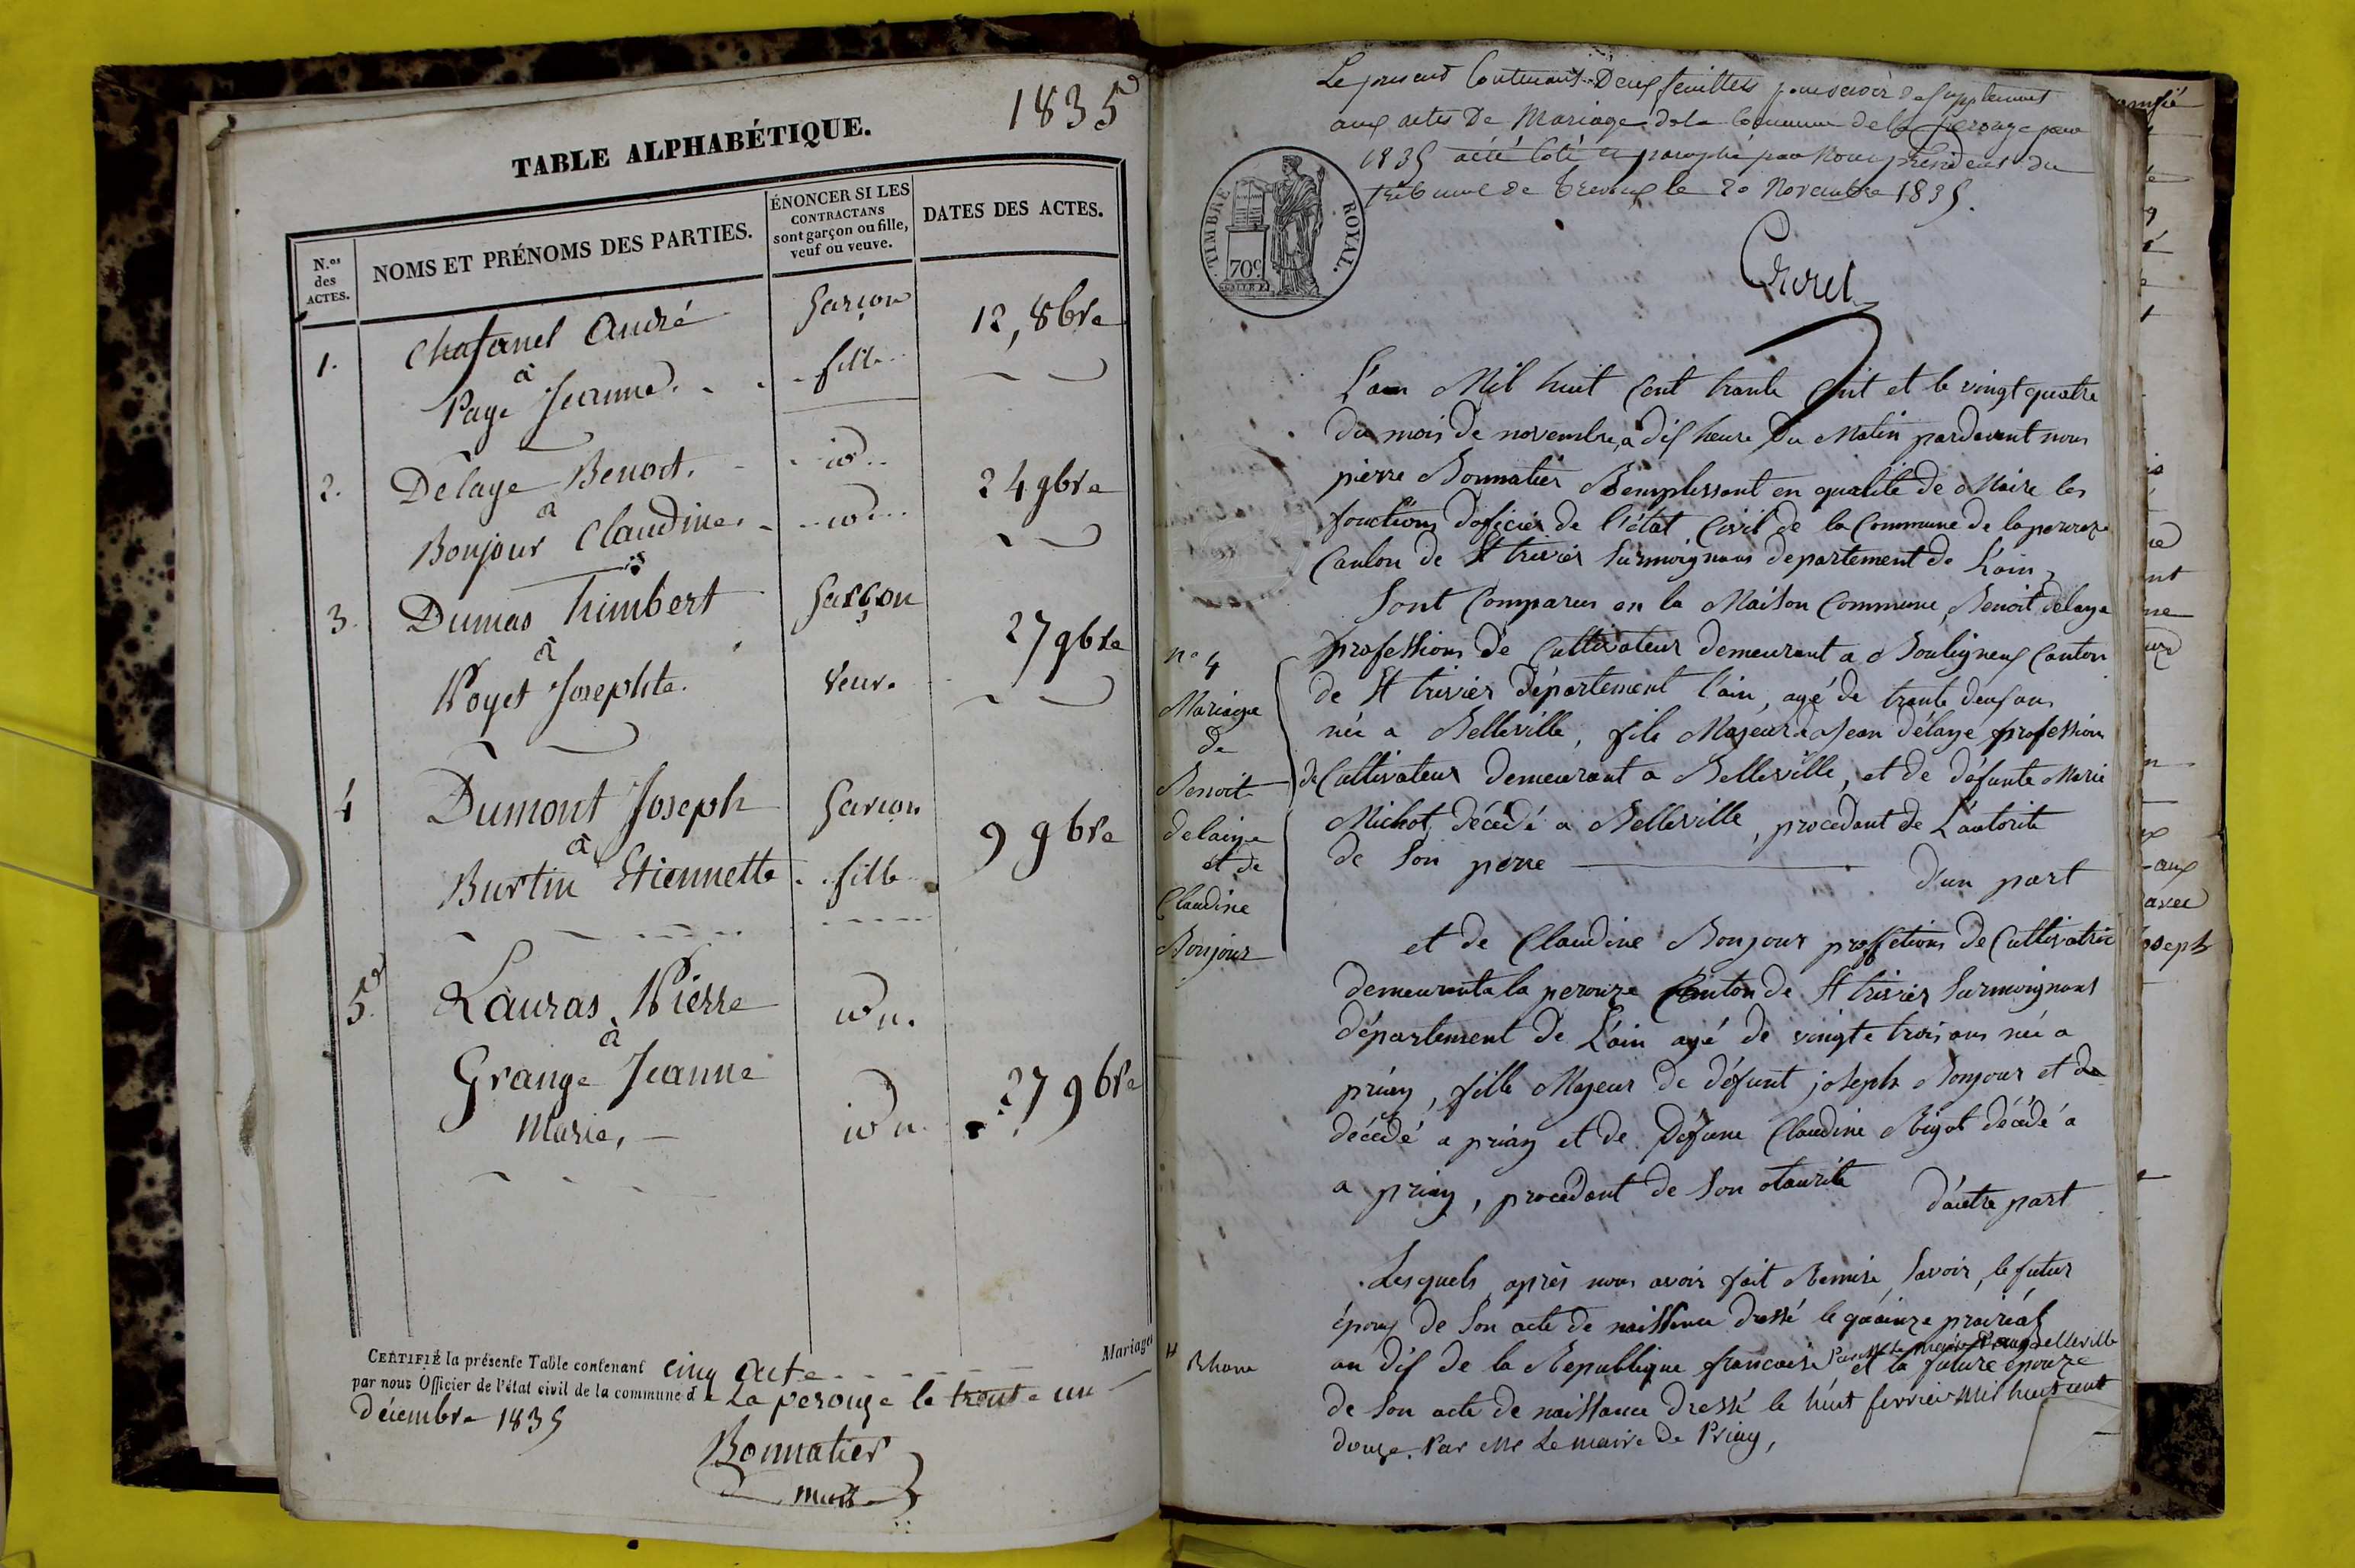 1835
TABLE ALPHABÉTIQUE.
N.os des ACTES.
NOMS ET PRÉNOMS DES PARTIES.
ÉNONCER SI LES CONTRACTANS sont garçon ou fille, veuf ou veuve.
DATES DES ACTES.
1. Chafanel André Garçon 12, 8bre
à
Page Jeanne. fille
2. Delaye Benoit. id 24 9bre
à
Bonjour Claudine. id
3. Dumas himbert Garçon 27 9bre
à
Poyet Josephte. Veuve
4 Dumont Joseph Garçon 9 9bre
à
Burtin Etiennette fille
5. Lauras Pierre id
à
Grange Jeanne 27 9bre
Marie, id
Mariages
CERTIFIÉ la présente Table contenant cinq acte
par nous Officier de l'état civil de la commune d e La perouze le trente un
décembre 1835
Bonnatier
maire
Le present Contenant Deux feuillets pour servir de Supplement
aux actes De Mariage de la Commune de la Perouze pour
1835 a été Coté et paraphé par Nous président du
tribunal de Trevoux le 20 Novembre 1835.
TIMBRE ROYAL.
70c
L'an Mil huit Cent trante Cint et le vingt quatre
du mois de novembre, à dix heure Du Matin pardevant nous
pierre Bonnatier Remplissant en qualité de Maire les
fonctions d'oficier de l'état Civil de la Commune de laperouze
Canton de St trivier Surmoignans departement de L'ain,
Sont Comparus en la Maison Commune, Benoit delaye
profession de Cultivateur demeurant a Bouligneux Canton
de St trivier département l'ain, agé de trante deux ans
née a Belleville, fils Majeur de Jean délaye profession
de Cultivateur demeurant a Belleville, et de défunte Marie
Michot, décédé a Belleville, procedant de L'autorite
de Son perre
D'un part
n° 4
Mariage
de
Benoit
delaiye
et de
Claudine
Bonjour
et de Claudine Bonjour proffetions de Cultivatrice
demeurant a la perouze Canton de St trivier Surmoignans
département de L'ain agé de vingte trois ans née a
priay, fille Majeur de défunt joseph Bonjour et de
décédé a priay et de Défune Claudine Bigot décédé a
a priay, procédant de Son otaurite
d'autre part
Lesquels, après nous avoir fait Remise, Savoir, le futur
époux de Son acte de naissance dressé le quainze prairéal
an dix de la Republique francaise et la future épouze
Rhone
de Son acte de naissance Dressé le huit ferrier Mil huit cent
douze. Par Mr Le maire De Priay,